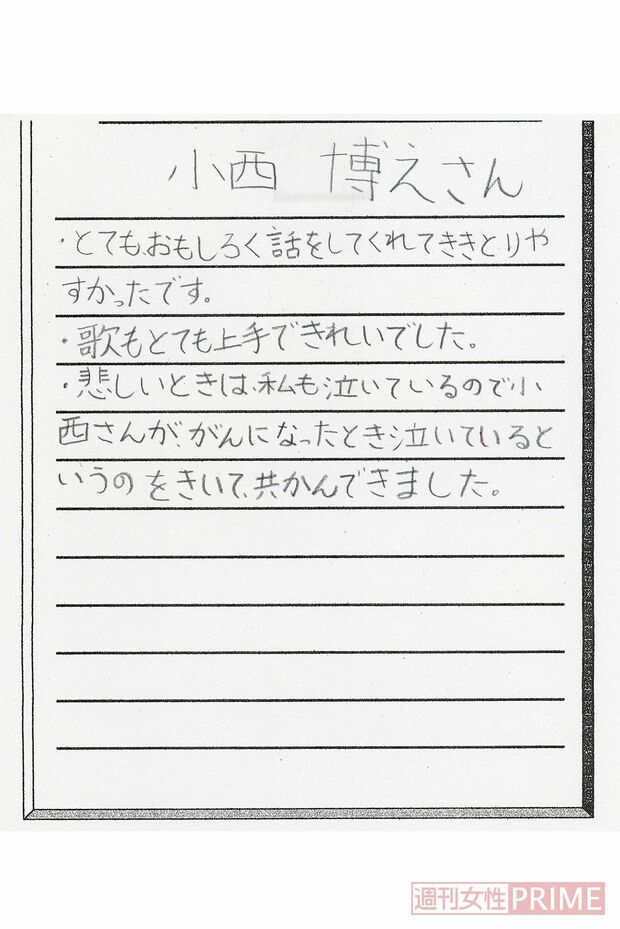 小西 博えさん
・とても、おもしろく話をしてくれてききとりや
すかったです。
・歌もとても上手できれいでした。
・悲しいときは、私も泣いているので小
西さんが、がんになったとき泣いていると
いうのをきいて、共かんできました。
週刊女性PRIME